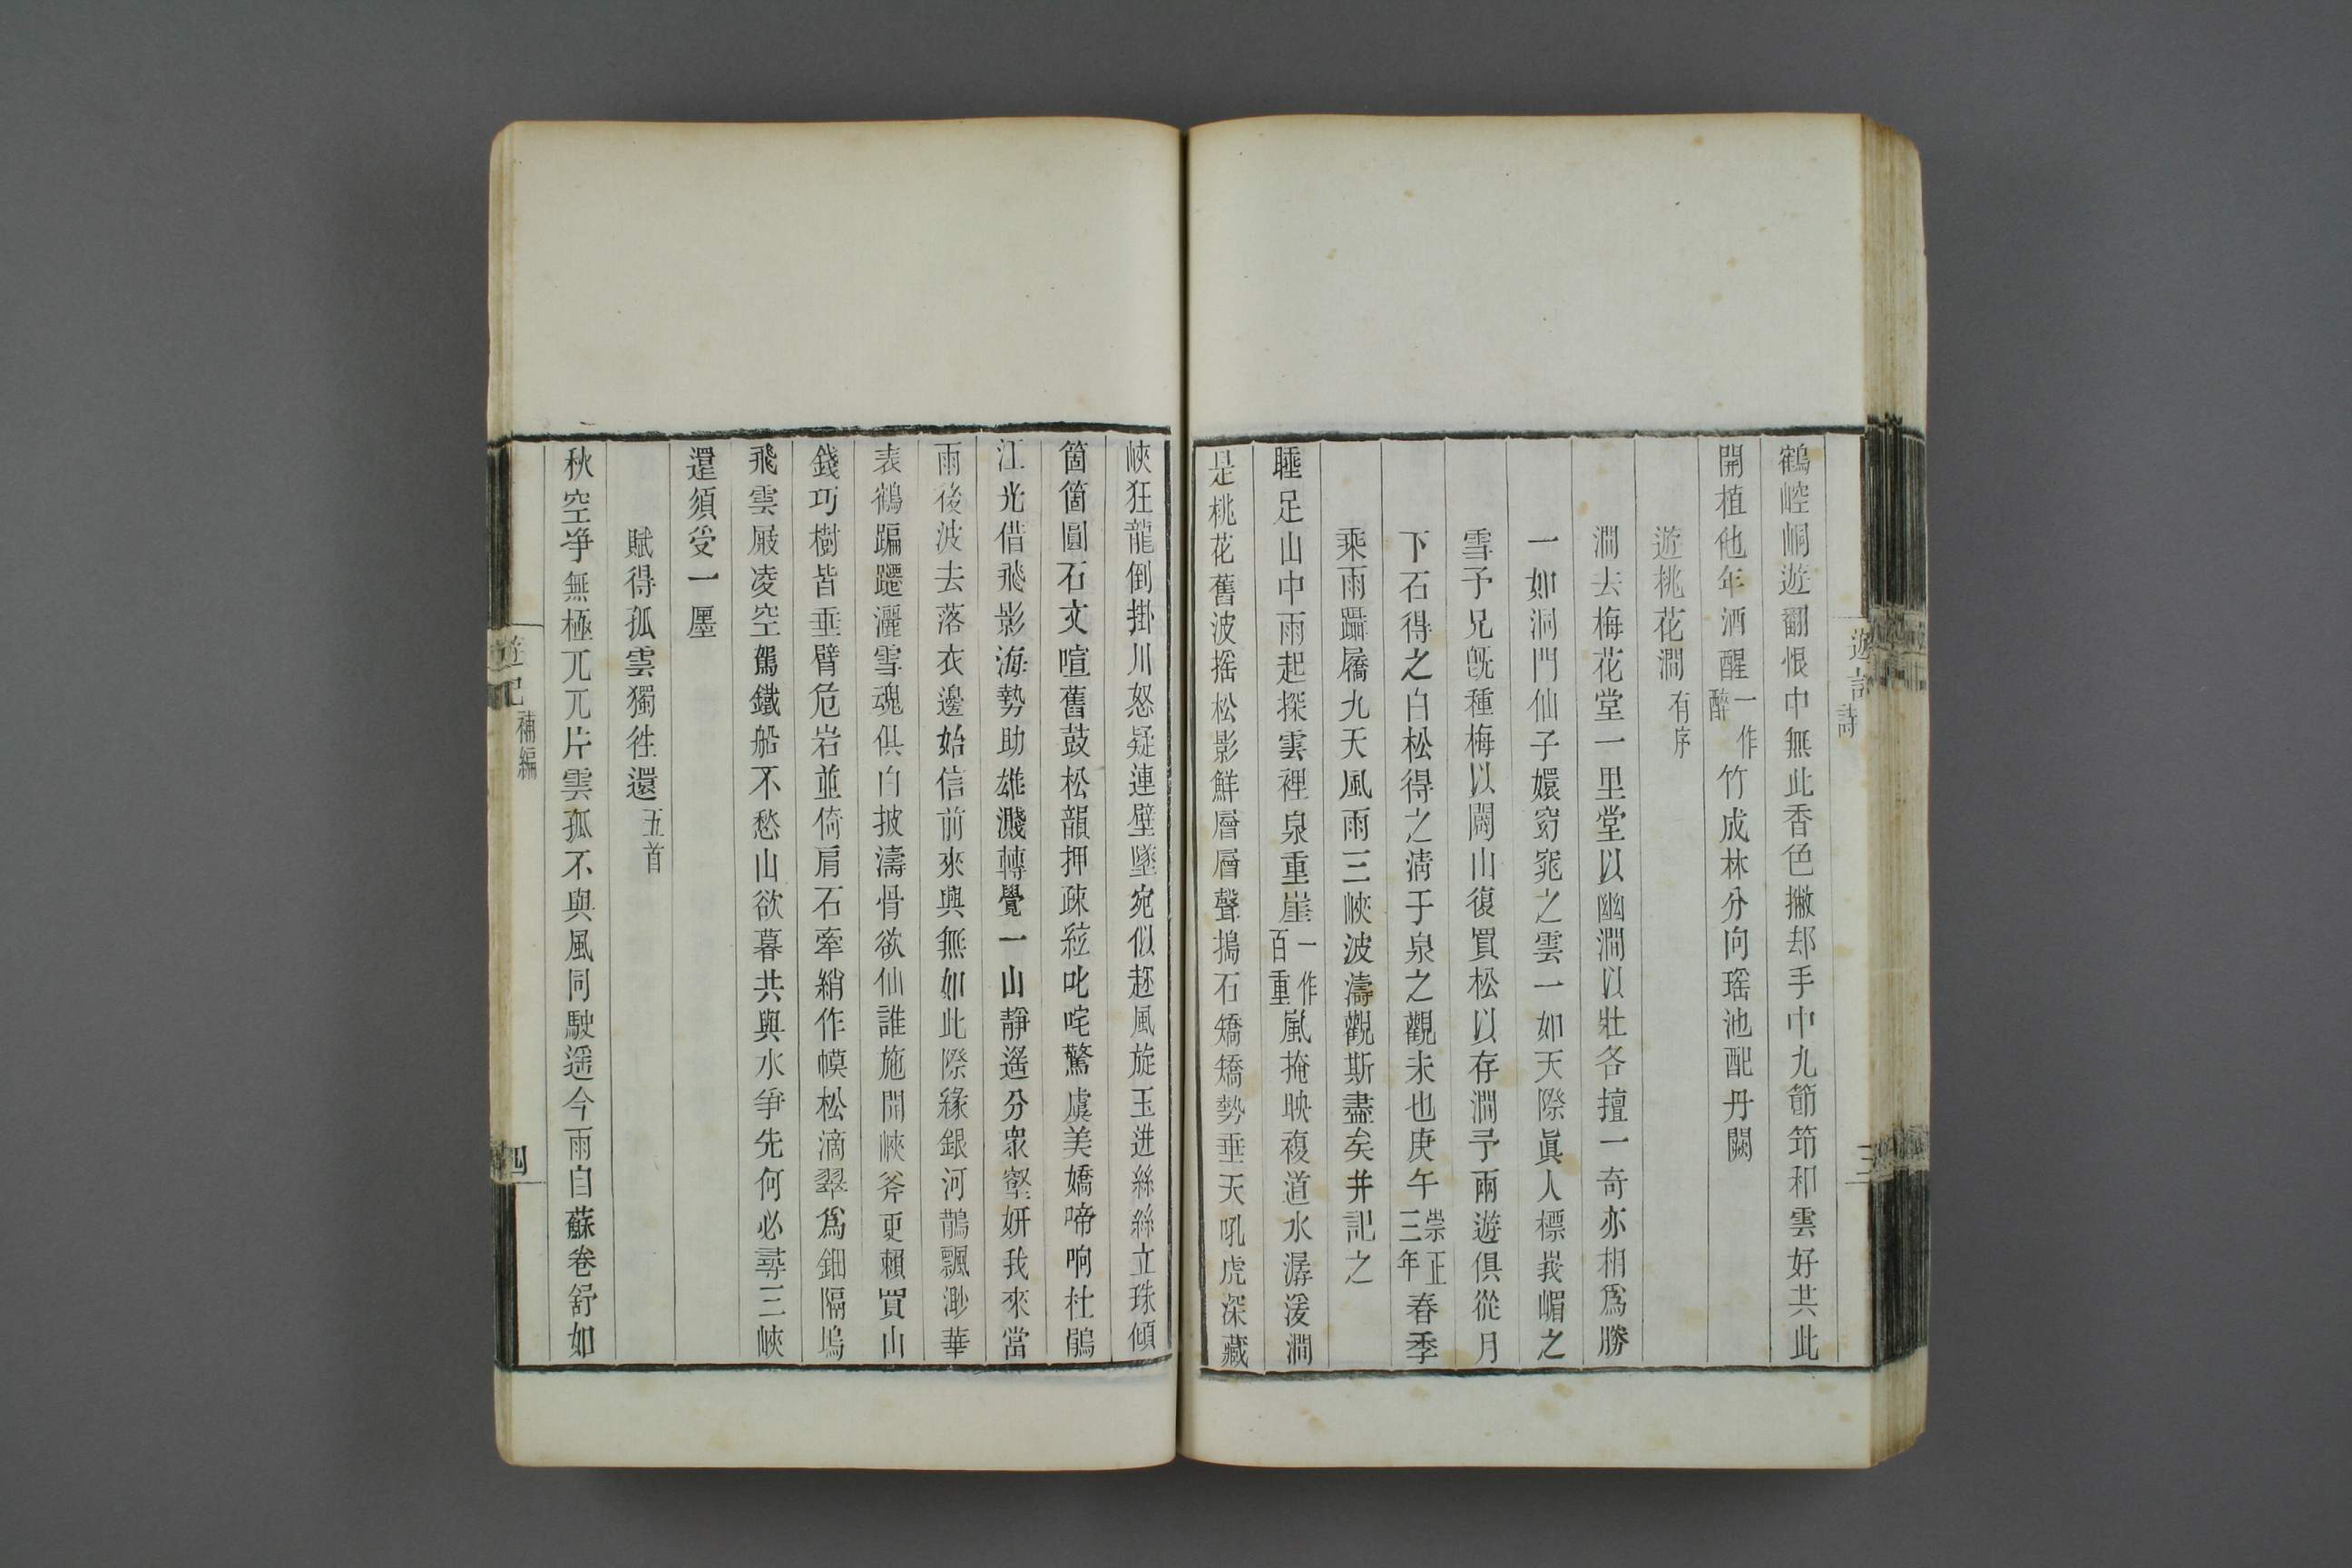 鶴崆峒遊翻恨中無此香色撇却手中九節笻和雲好共此
開植他年酒醒一作醉竹成林分向瑶池配丹闕
遊桃花澗有序
澗去梅花堂一里堂以幽澗以壯各擅一奇亦相爲勝
一如洞門仙子嬛窈窕之雲一如天際眞人標峩嵋之
雪予兄旣種梅以闢山復買松以存澗予兩遊俱從月
下石得之白松得之淸于泉之觀未也庚午崇正三年春季
乘雨躡屩九天風雨三峽波濤觀斯盡矣并記之
睡足山中雨起探雲裡泉重崖一作百重嵐掩映複道水潺湲澗
是桃花舊波摇松影鮮層層聲搗石矯矯勢垂天吼虎深藏
峽狂龍倒掛川怒疑連壁墜宛似趂風旋玉迸絲絲立珠傾
箇箇圓石文喧舊鼓松韻押疎絃叱咤驚虞美嬌啼响杜鵑
江光借飛影海勢助雄濺轉覺一山靜遥分衆壑妍我來當
雨後波去落衣邊始信前來興無如此際緣銀河鵲飄渺華
表鶴蹁躚灑雪魂俱白披濤骨欲仙誰施開峽斧更賴買山
錢巧樹皆垂臂危岩並倚肩石牽綃作幙松滴翠爲鈿隔塢
飛雲屐凌空駕鐵船不愁山欲暮共與水爭先何必尋三峽
還須受一廛
賦得孤雲獨徃還五首
秋空净無極兀兀片雲孤不與風同駛遥今雨自蘇卷舒如
遊記 詩
三
遊記 補編
四